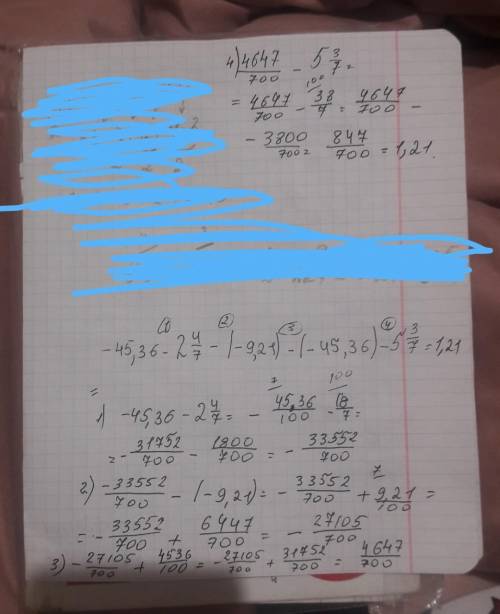 4) 4647/700 - 5 3/7 =
= 4647/700 - 38/7 (100) = 4647/700 -
- 3800/700 = 847/700 = 1,21.
-45,36 - 2 4/7 - (-9,21) - (-45,36) - 5 3/7 = 1,21
① ② ③ ④
=
1) -45,36 - 2 4/7 = - 45,36/100 (7) - 18/7 (100) =
= - 31752/700 - 1800/700 = - 33552/700
2) -33552/700 - (-9,21) = - 33552/700 + 9,21/100 (7) =
= - 33552/700 + 6447/700 = - 27105/700
3) - 27105/700 + 4536/100 = - 27105/700 + 31752/700 = 4647/700